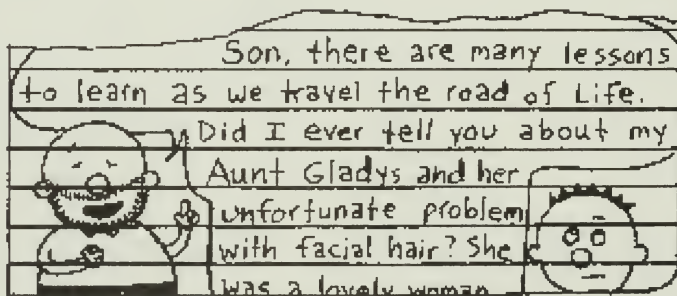 Son, there are many lessons
to learn as we travel the road of Life.
Did I ever tell you about my
Aunt Gladys and her
unfortunate problem
with facial hair? She
was a lovely woman